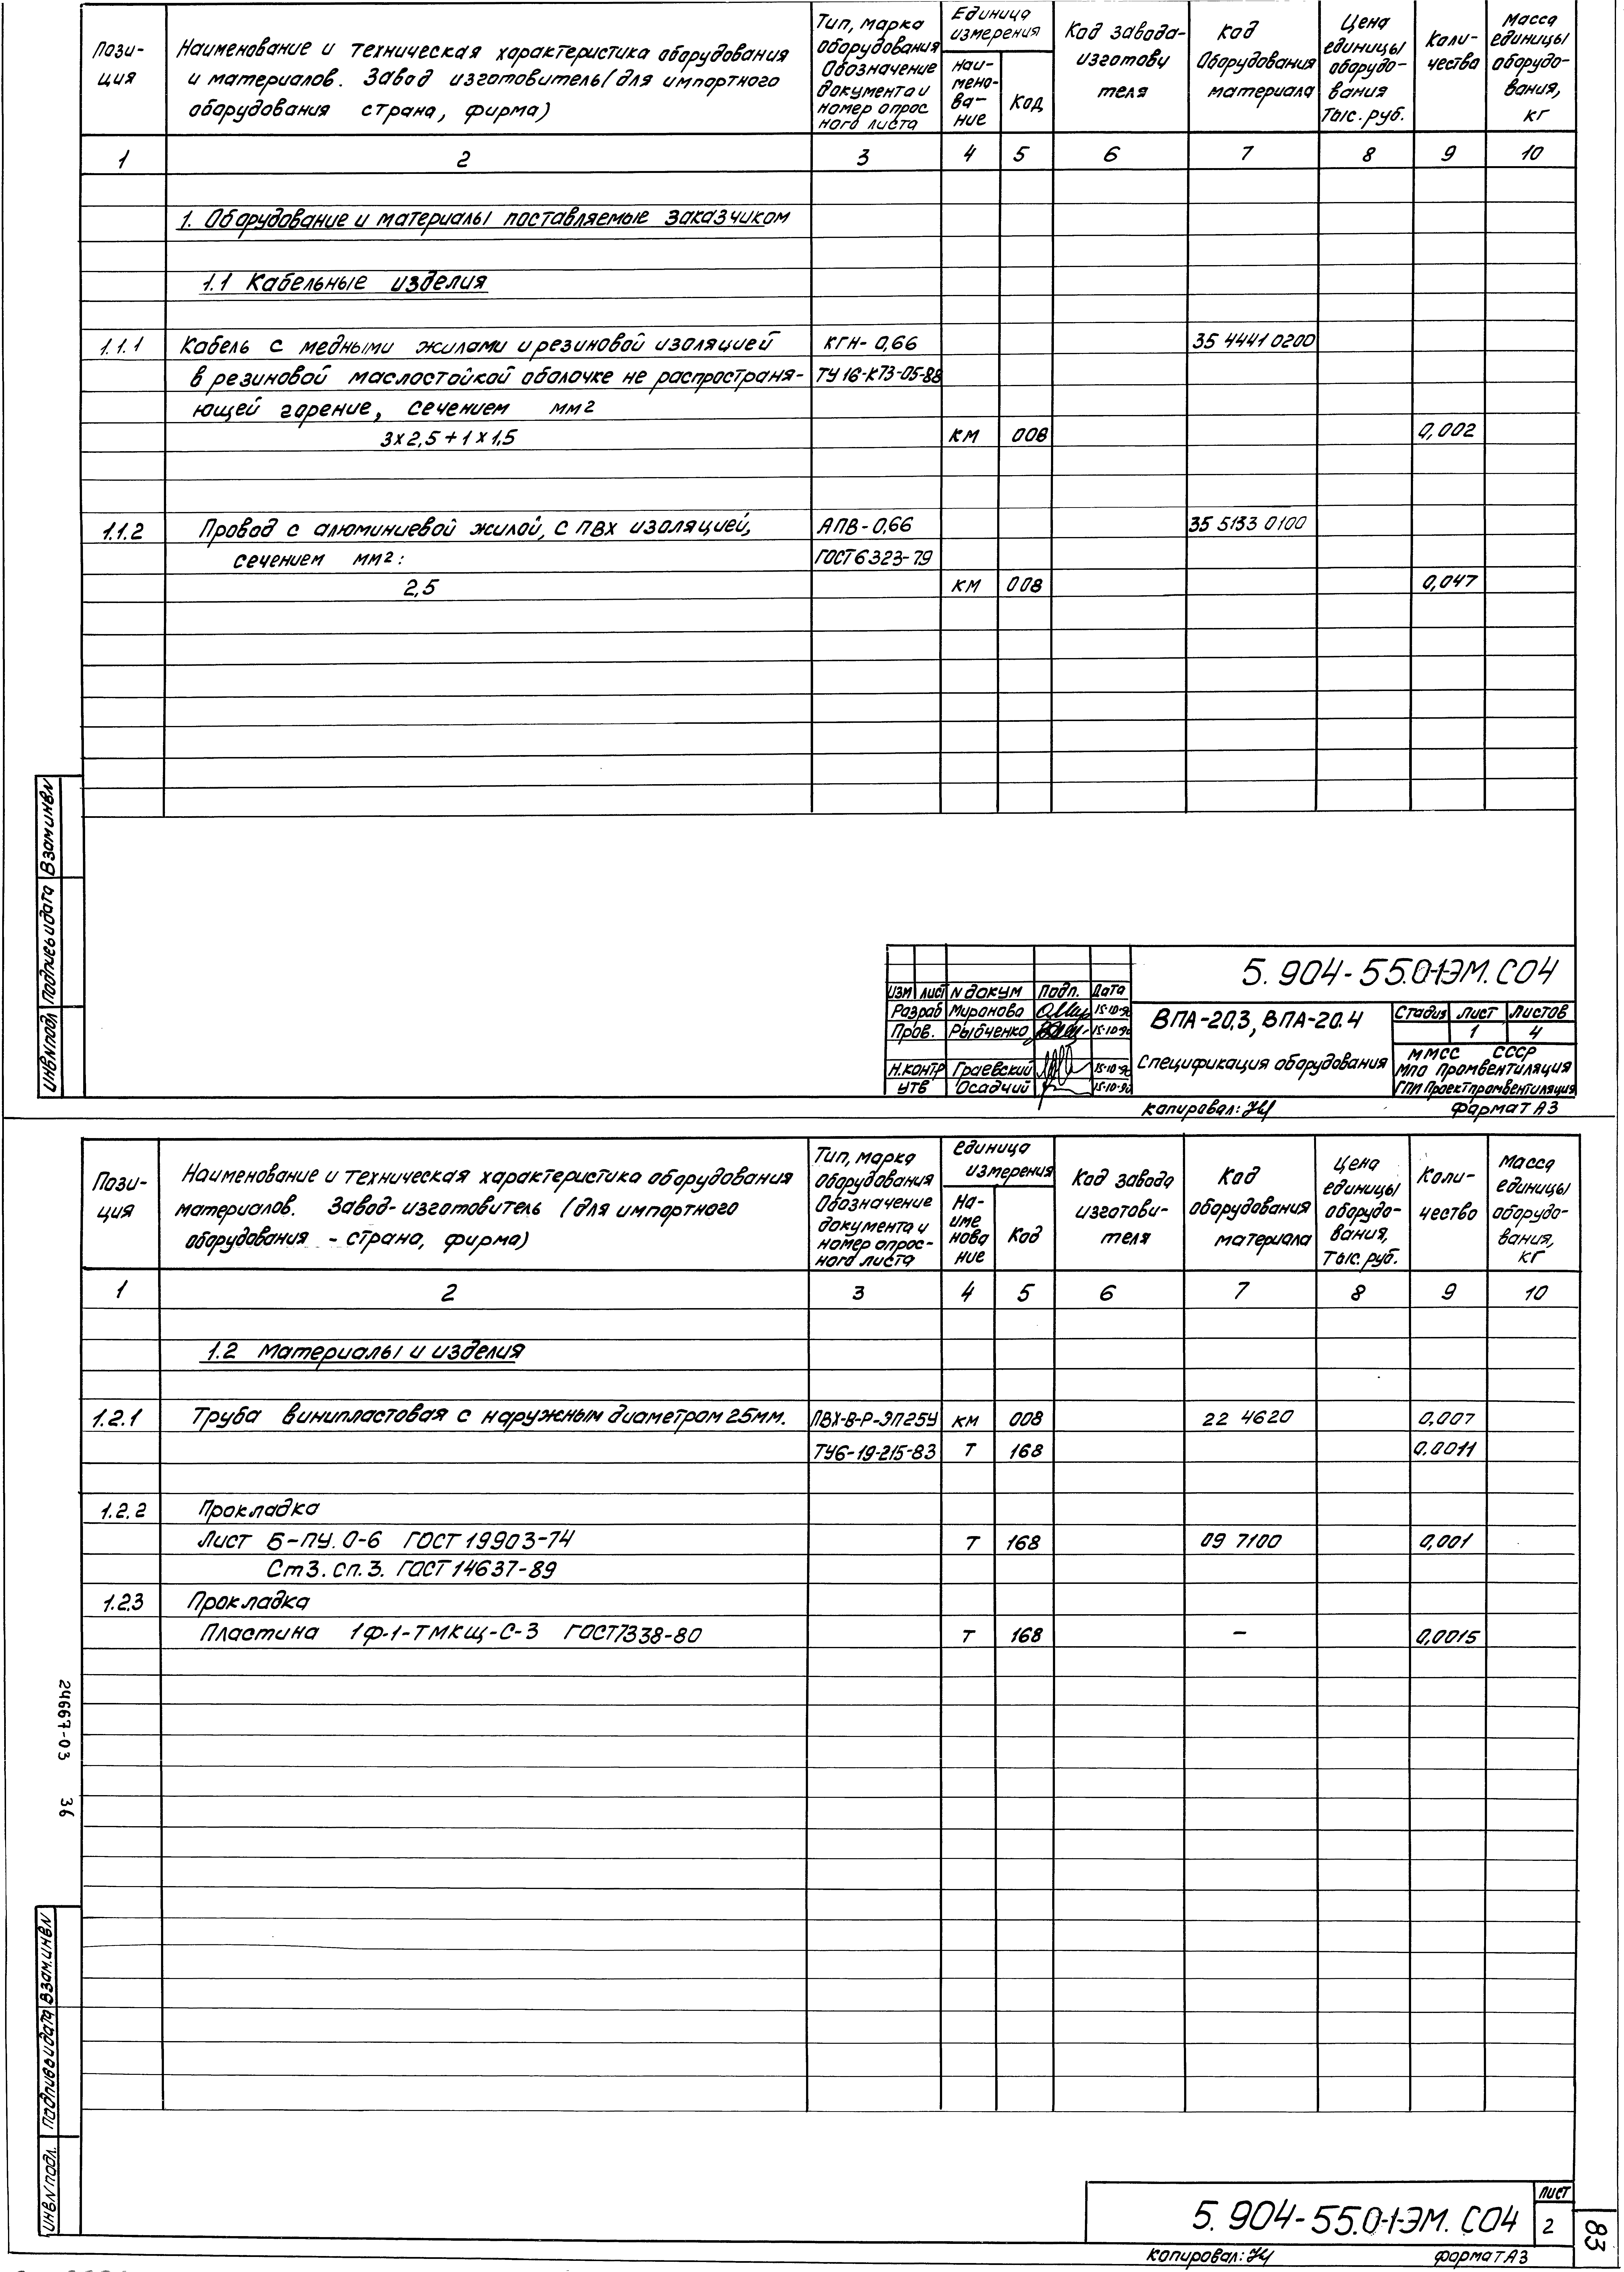 Пози-
ция
Наименование и техническая характеристика оборудования
и материалов. Завод изготовитель (для импортного
оборудования страна, фирма)
Тип, марка
оборудования
Обозначение
документа и
номер опрос
ного листа
Единица
измерения
наи-
мено-
ва-
ние
Код
Код завода-
изготови
теля
Код
Оборудования
материала
Цена
единицы
оборудо-
вания
Тыс. руб.
Коли-
чества
Масса
единицы
оборудо-
вания,
кг
1 2 3 4 5 6 7 8 9 10
1. Оборудование и материалы поставляемые заказчиком
1.1 Кабельные изделия
1.1.1 Кабель с медными жилами и резиновой изоляцией КГН-0,66 35 4441 0200
в резиновой маслостойкой оболочке не распространя- ТУ 16-К73-05-88
ющей горение, сечением мм2
3х2,5+1х1,5 км 008 0,002
1.1.2 Провод с алюминиевой жилой, с ПВХ изоляцией, АПВ-0,66 35 5133 0100
сечением мм2: ГОСТ 6323-79
2,5 км 008 0,047
Взам инв N
Подпись и дата
Инв N подл
5.904-55.0-1-ЭМ.СО4
Изм Лист N докум Подп. Дата
Разраб Миронова 15-10-90
Пров. Рыбченко 15-10-90
Н.контр Граевский 15-10-90
Утв Осадчий 15-10-90
ВПА-20.3, ВПА-20.4
Спецификация оборудования
Стадия Лист Листов
1 4
ММСС СССР
МПО Промвентиляция
ГПИ Проектпромвентиляция
Копировал:
Формат А3
Пози-
ция
Наименование и техническая характеристика оборудования
материалов. Завод-изготовитель (для импортного
оборудования - страна, фирма)
Тип, марка
оборудования
Обозначение
документа и
номер опрос-
ного листа
единица
измерения
На-
име
нова
ние
Код
Код завода
изготови-
теля
Код
оборудования
материала
Цена
единицы
оборудо-
вания,
Тыс. руб.
Коли-
чество
Масса
единицы
оборудо-
вания,
кг
1 2 3 4 5 6 7 8 9 10
1.2 Материалы и изделия
1.2.1 Труба винипластовая с наружным диаметром 25мм. ПВХ-В-Р-ЭП25У км 008 22 4620 0,007
ТУ6-19-215-83 Т 168 0.0011
1.2.2 Прокладка
Лист Б-ПУ.0-6 ГОСТ 19903-74 Т 168 09 7100 0,001
Ст3.сп.3. ГОСТ 14637-89
1.2.3 Прокладка
Пластина 1Ф-1-ТМКЩ-С-3 ГОСТ7338-80 Т 168 - 0,0015
24667-03 36
Взам.инв N
Подпись и дата
Инв N подл.
5.904-55.0-1-ЭМ.СО4
Лист
2
83
Копировал:
Формат А3